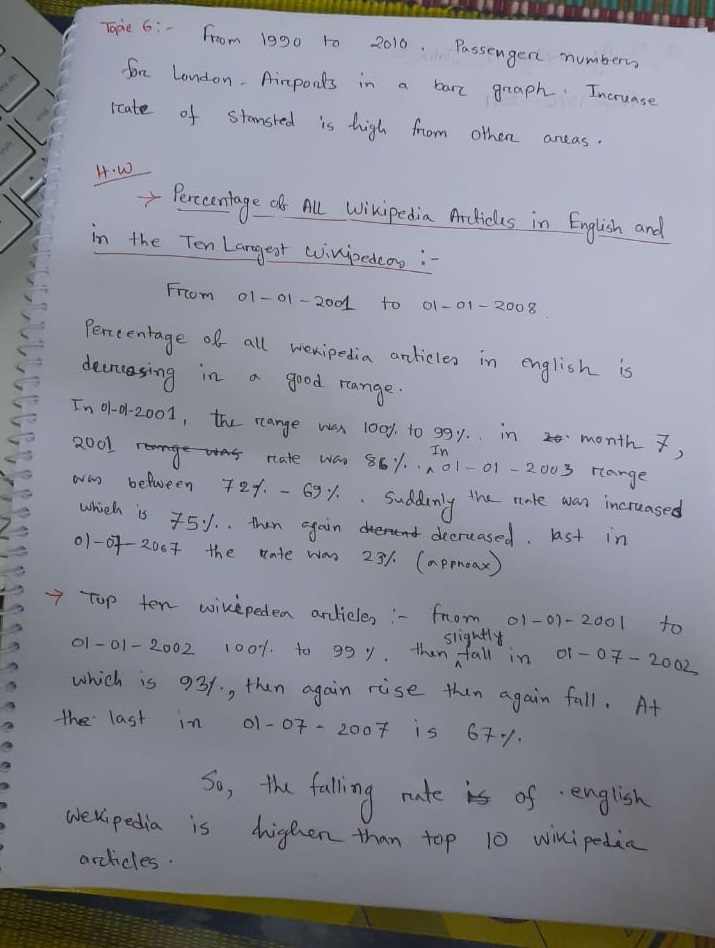 Topic 6:- From 1990 to 2010. Passengers numbers
for London Airports in a bar graph. Increase
rate of Stansted is high from other areas.
H.W
→ Percentage of All Wikipedia Articles in English and
in the Ten Largest Wikipedeas :-
From 01-01-2001 to 01-01-2008
Percentage of all wekipedia articles in english is
decreasing in a good range.
In 01-01-2001, the range was 100% to 99%. in 20 month 7,
2001 range was rate was 86%. In 01-01-2003 range
was between 72% - 69%. Suddenly the rate was increased
which is 75%. then again decreased. last in
01-07-2007 the rate was 23% (approax)
→ Top ten wikipedea articles :- from 01-01-2001 to
01-01-2002 100% to 99%. then slightly fall in 01-07-2002
which is 93%, then again rise then again fall. At
the last in 01-07-2007 is 67%.
So, the falling rate is of english
Wekipedia is higher than top 10 wikipedia
articles.